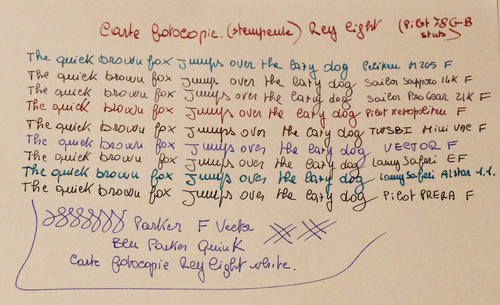 Carte fotocopie. (stampante) Rey light (Pilot 78G-B stub)
The quick brown fox jumps over the lazy dog Pelikan M205 F
The quick brown fox jumps over the lazy dog Sailor Sapporo 14K F
The quick brown fox jumps over the lazy dog Sailor Pro Gear 21K F
The quick brown fox jumps over the lazy dog Pilot Metropolitan F
The quick brown fox jumps over the lazy dog TWSBI Mini Vac F
The quick brown fox jumps over the lazy dog VECTOR F
The quick brown fox jumps over the lazy dog Lamy Safari EF
The quick brown fox jumps over the lazy dog Lamy Safari Alstar 1.1.
The quick brown fox jumps over the lazy dog Pilot PRERA F
Parker F Vector
Blu Parker Quink
Carte fotocopie Rey light white.